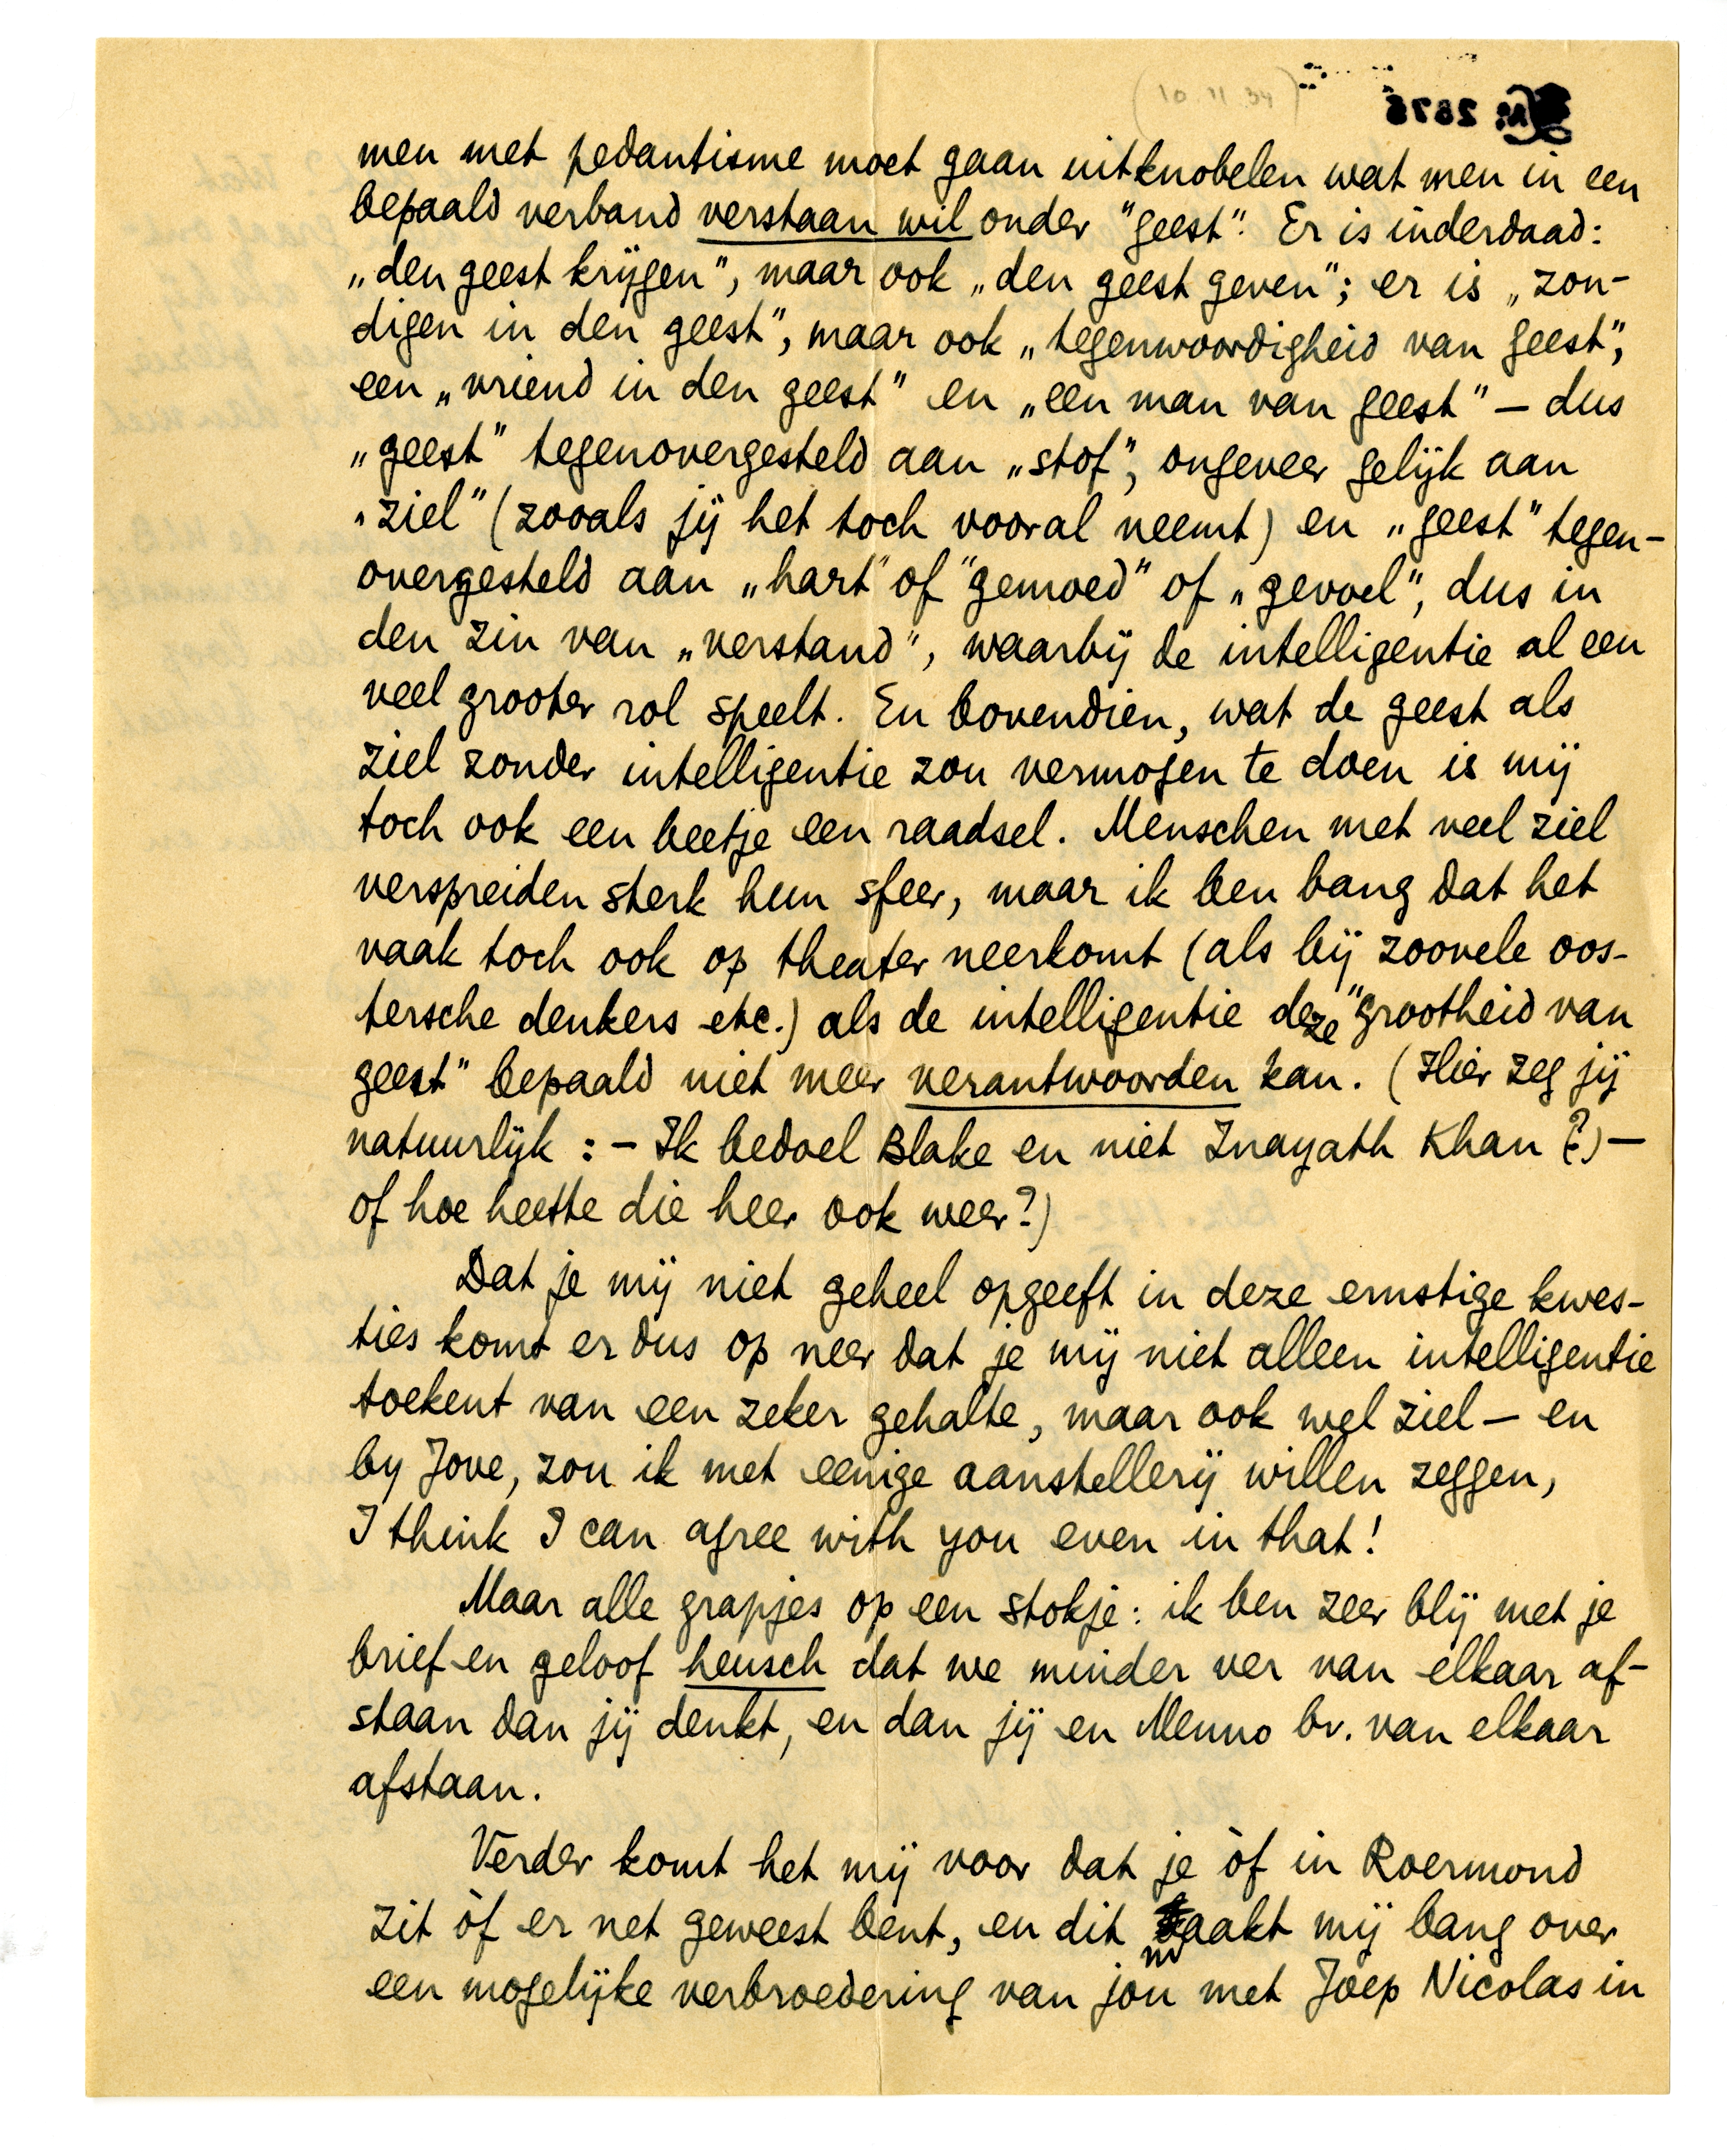 (10.11.34)
№ 2676
men met pedantisme moet gaan uitknobelen wat men in een
bepaald verband verstaan wil onder "geest". Er is inderdaad:
„den geest krijgen", maar ook „den geest geven"; er is „zon-
digen in den geest", maar ook „tegenwoordigheid van geest",
een „vriend in den geest" en „een man van geest" — dus
„geest" tegenovergesteld aan „stof", ongeveer gelijk aan
„ziel" (zooals jij het toch vooral neemt) en „geest" tegen-
overgesteld aan „hart" of "gemoed" of „gevoel", dus in
den zin van „verstand", waarbij de intelligentie al een
veel grooter rol speelt. En bovendien, wat de geest als
ziel zonder intelligentie zou vermogen te doen is mij
toch ook een beetje een raadsel. Menschen met veel ziel
verspreiden sterk hun sfeer, maar ik ben bang dat het
vaak toch ook op theater neerkomt (als bij zoovele oos-
tersche denkers etc.) als de intelligentie deze "grootheid van
geest" bepaald niet meer verantwoorden kan. (Hier zeg jij
natuurlijk : – Ik bedoel Blake en niet Inayath Khan (?) —
of hoe heette die heer ook weer?)
Dat je mij niet geheel opgeeft in deze ernstige kwes-
ties komt er dus op neer dat je mij niet alleen intelligentie
toekent van een zeker gehalte, maar ook wel ziel — en
by Jove, zou ik met eenige aanstellerij willen zeggen,
I think I can agree with you even in that!
Maar alle grapjes op een stokje: ik ben zeer blij met je
brief en geloof heusch dat we minder ver van elkaar af-
staan dan jij denkt, en dan jij en Menno bv. van elkaar
afstaan.
Verder komt het mij voor dat je òf in Roermond
zit òf er net geweest bent, en dit maakt mij bang over
een mogelijke verbroedering van jou met Joep Nicolas in